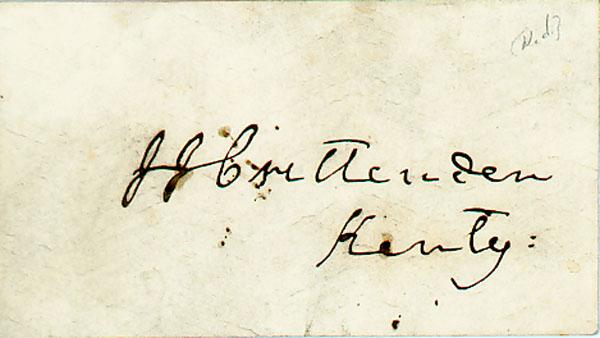 (N.d.)
J J Crittenden
Kenty: